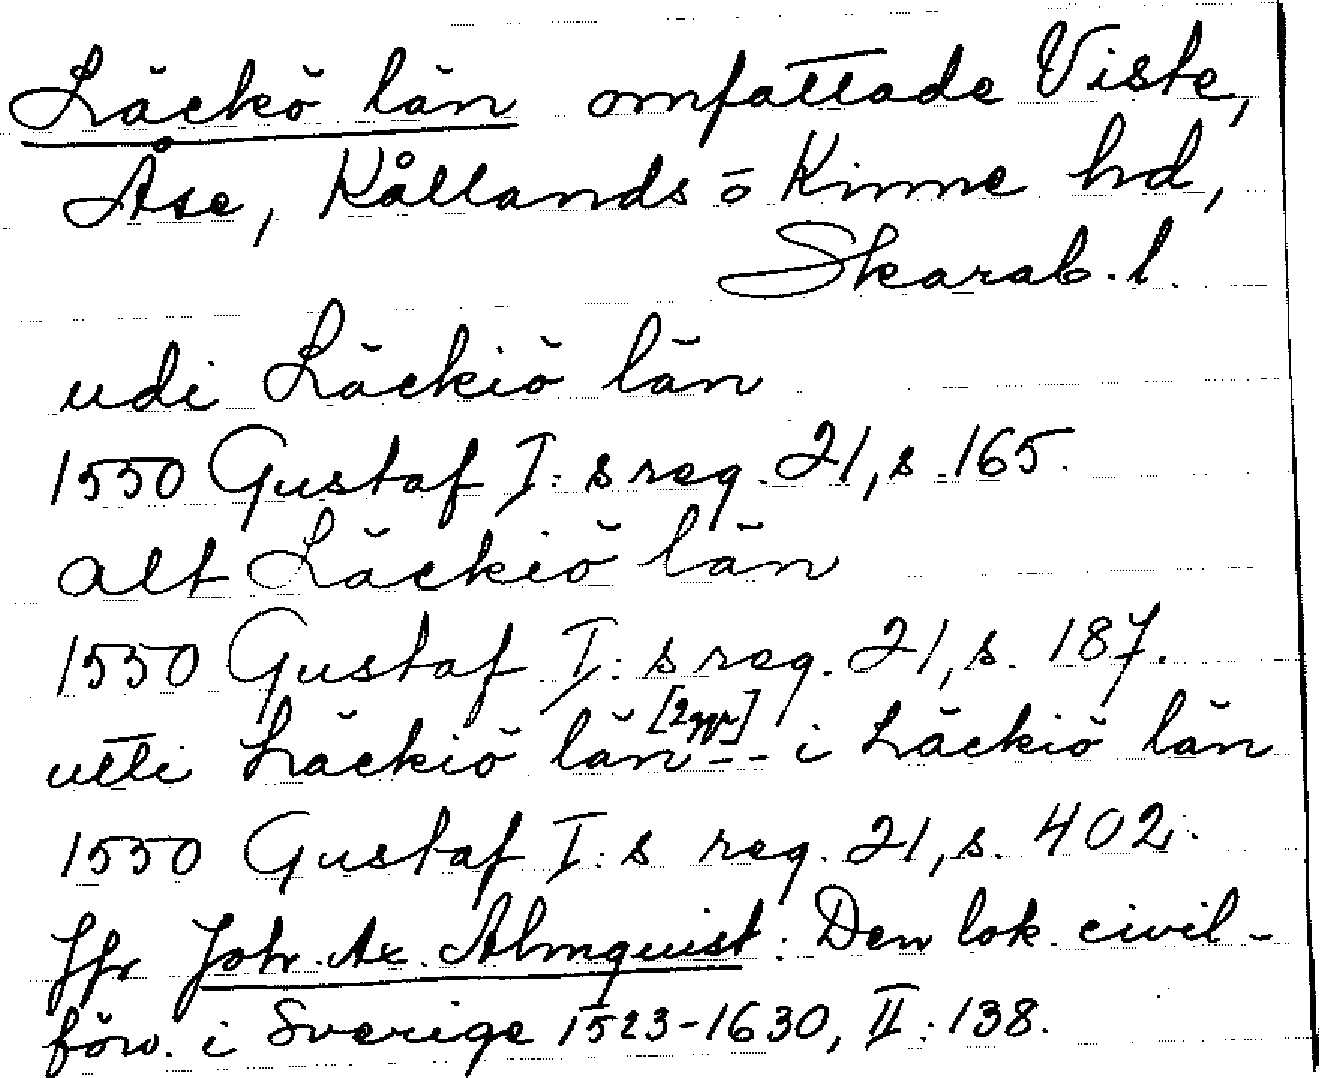 Läckö län omfattade Viste,
Åse, Kållands o Kinne hd,
Skarab. l.
udi Läckiö län
1550 Gustaf I:s reg. 21, s. 165.
alt Läckiö län
1550 Gustaf I:s reg. 21, s. 187.
utti Läckiö län [2 ggr] -- i Läckiö län
1550 Gustaf I:s reg. 21, s. 402.
Jfr Joh. Ax. Almquist: Den lok. civil-
förv. i Sverige 1523-1630, II:138.